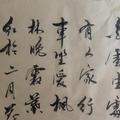 雲生處
有人家停
車坐愛楓
林晚霜葉
紅於二月花